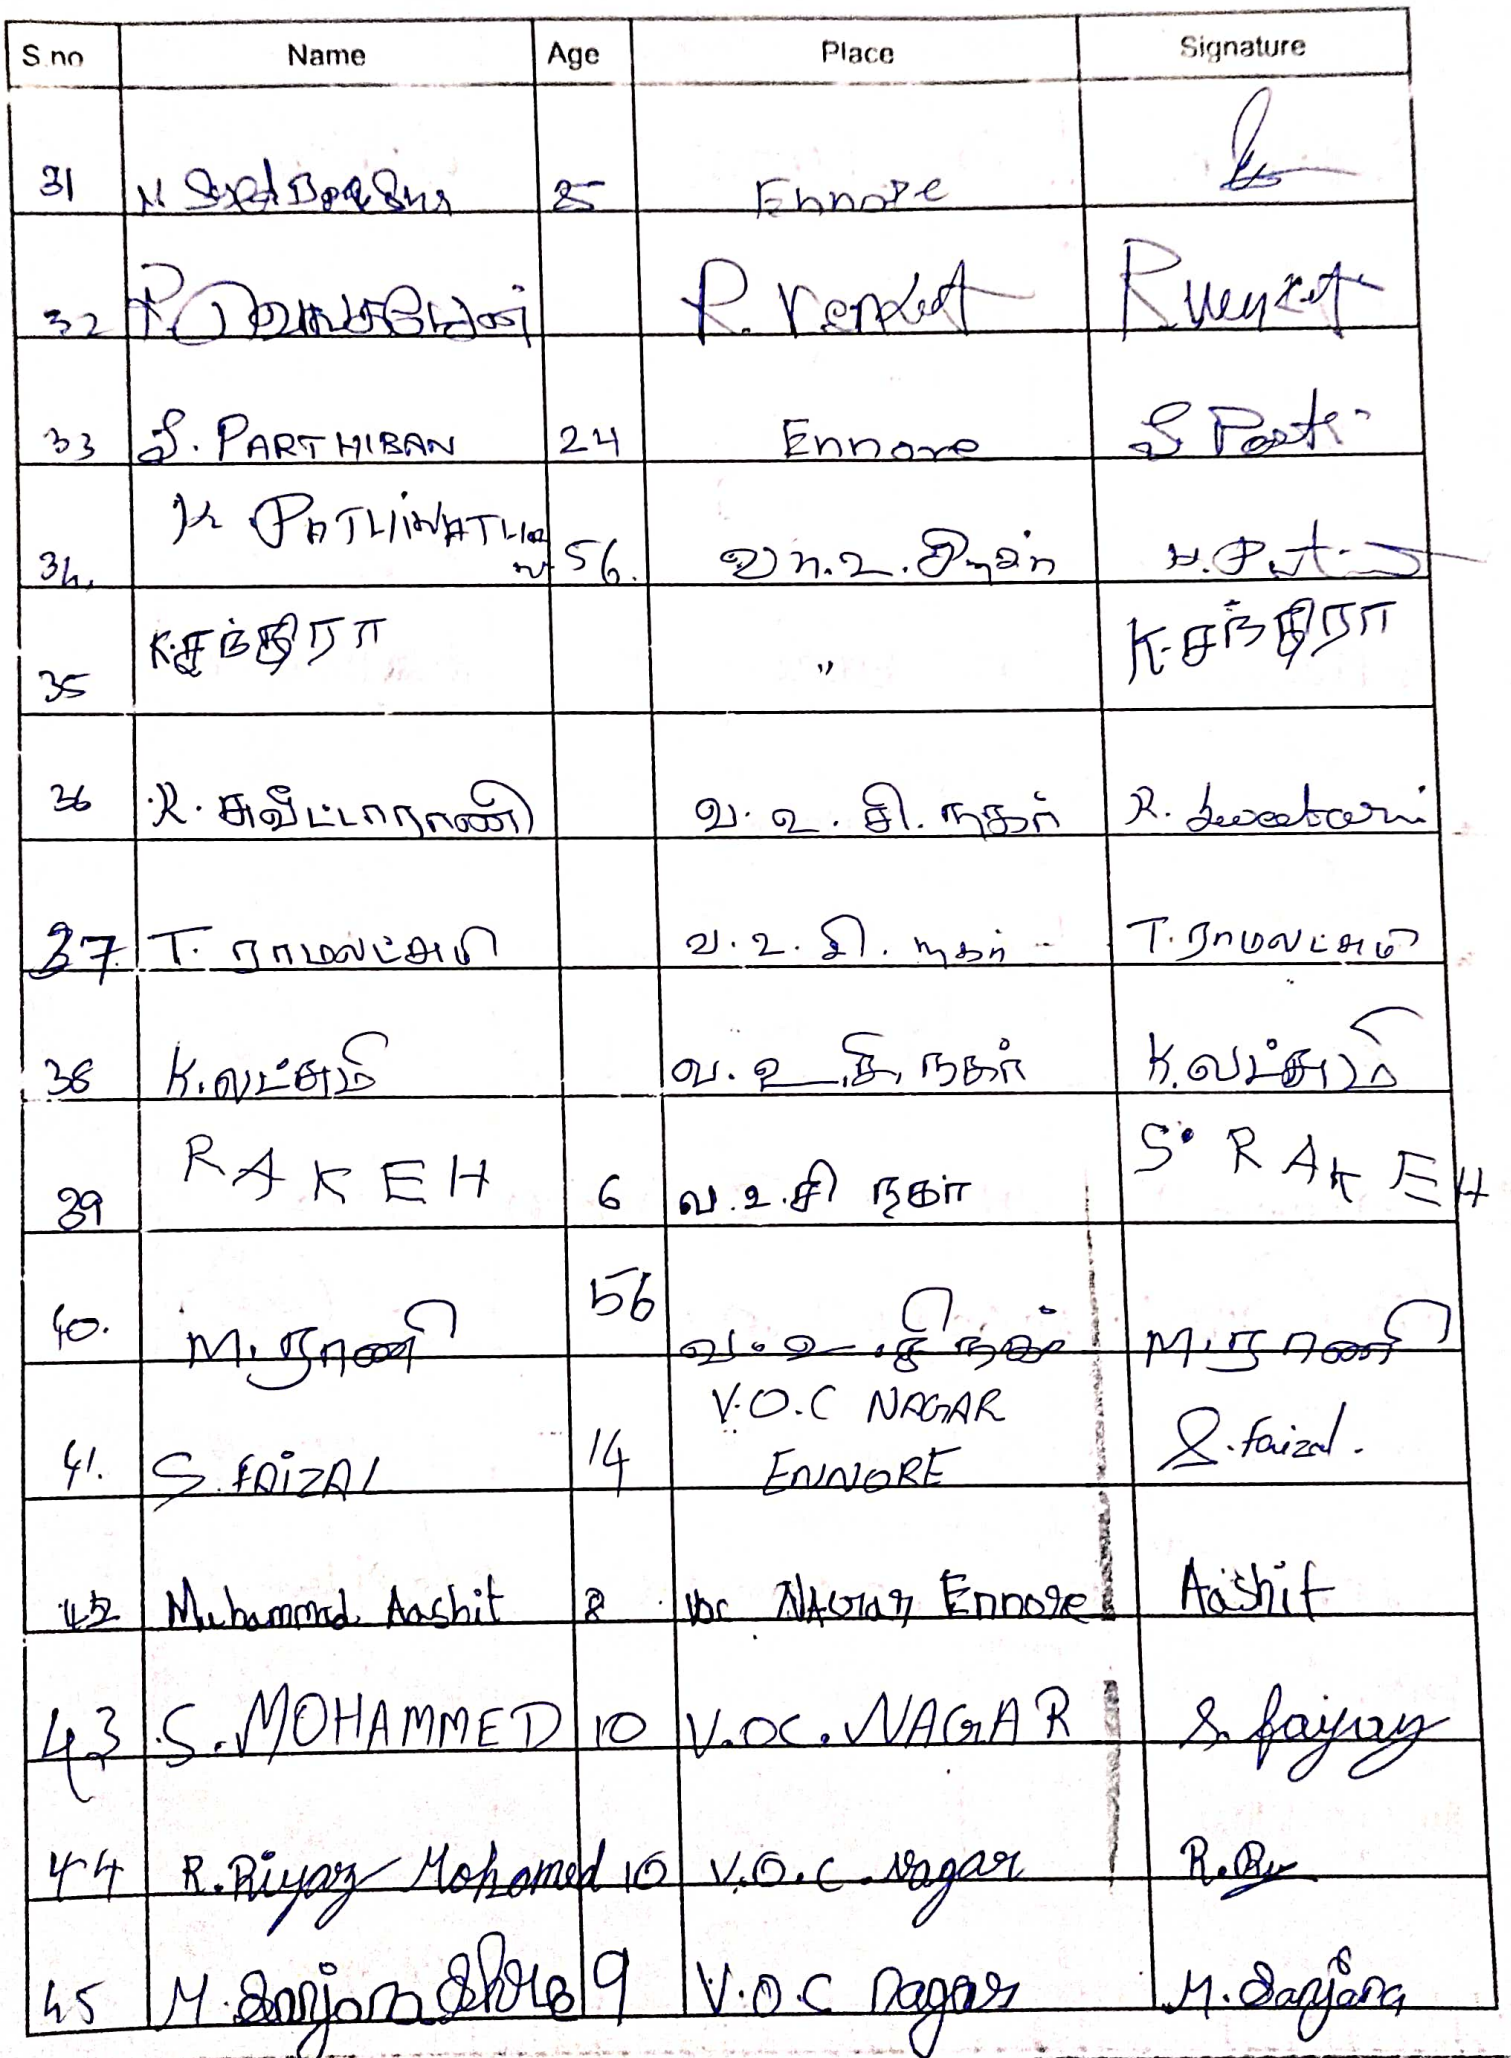 S.no Name Age Place Signature
31 M 25 Ennore
32 R. R. Venkat R. Venkat
33 S. PARTHIBAN 24 Ennore S Parti
K PATHINATHA
34. 56. வ.உ.சி.நகர்
35 K.சந்திரா " K.சந்திரா
36 R. சுவீட்டாராணி வ. உ. சி. நகர் R. Sweetarani
37. T. ராமலட்சுமி வ. உ. சி. நகர் T. ராமலட்சுமி
38 K. லட்சுமி வ. உ. சி. நகர் K. லட்சுமி
39 RAKEH 6 வ.உ.சி நகர் S. RAKEH
40. M. ராணி 56 வ. உ. சி நகர் M. ராணி
V.O.C NAGAR
41. S. FAIZAL 14 ENNORE S. faizal.
42 Muhammad Aashit 8 voc NAGAR Ennore Aashit
43 S. MOHAMMED 10 V.OC. NAGAR S. fayay
44 R. Riyaz Mohamed 10 V.O.C. Nagar R.
45 M. Sanjana Shree 9 V.O.C Nagar M. Sanjana